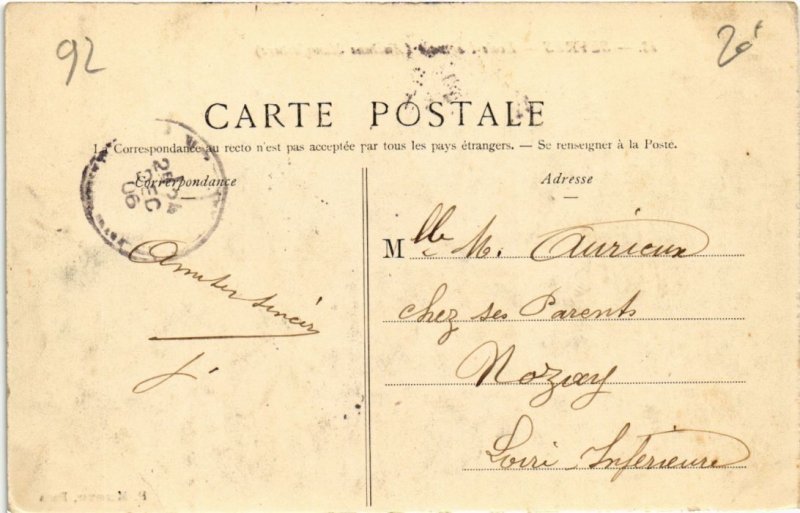 92
20f
CARTE POSTALE
1. Correspondance au recto n'est pas acceptée par tous les pays étrangers. — Se renseigner à la Poste.
Correspondance
Adresse
25 DEC 06
Amities sincères
Mlle M. Aurieux
chez ses Parents
Nozay
Loire Inférieure